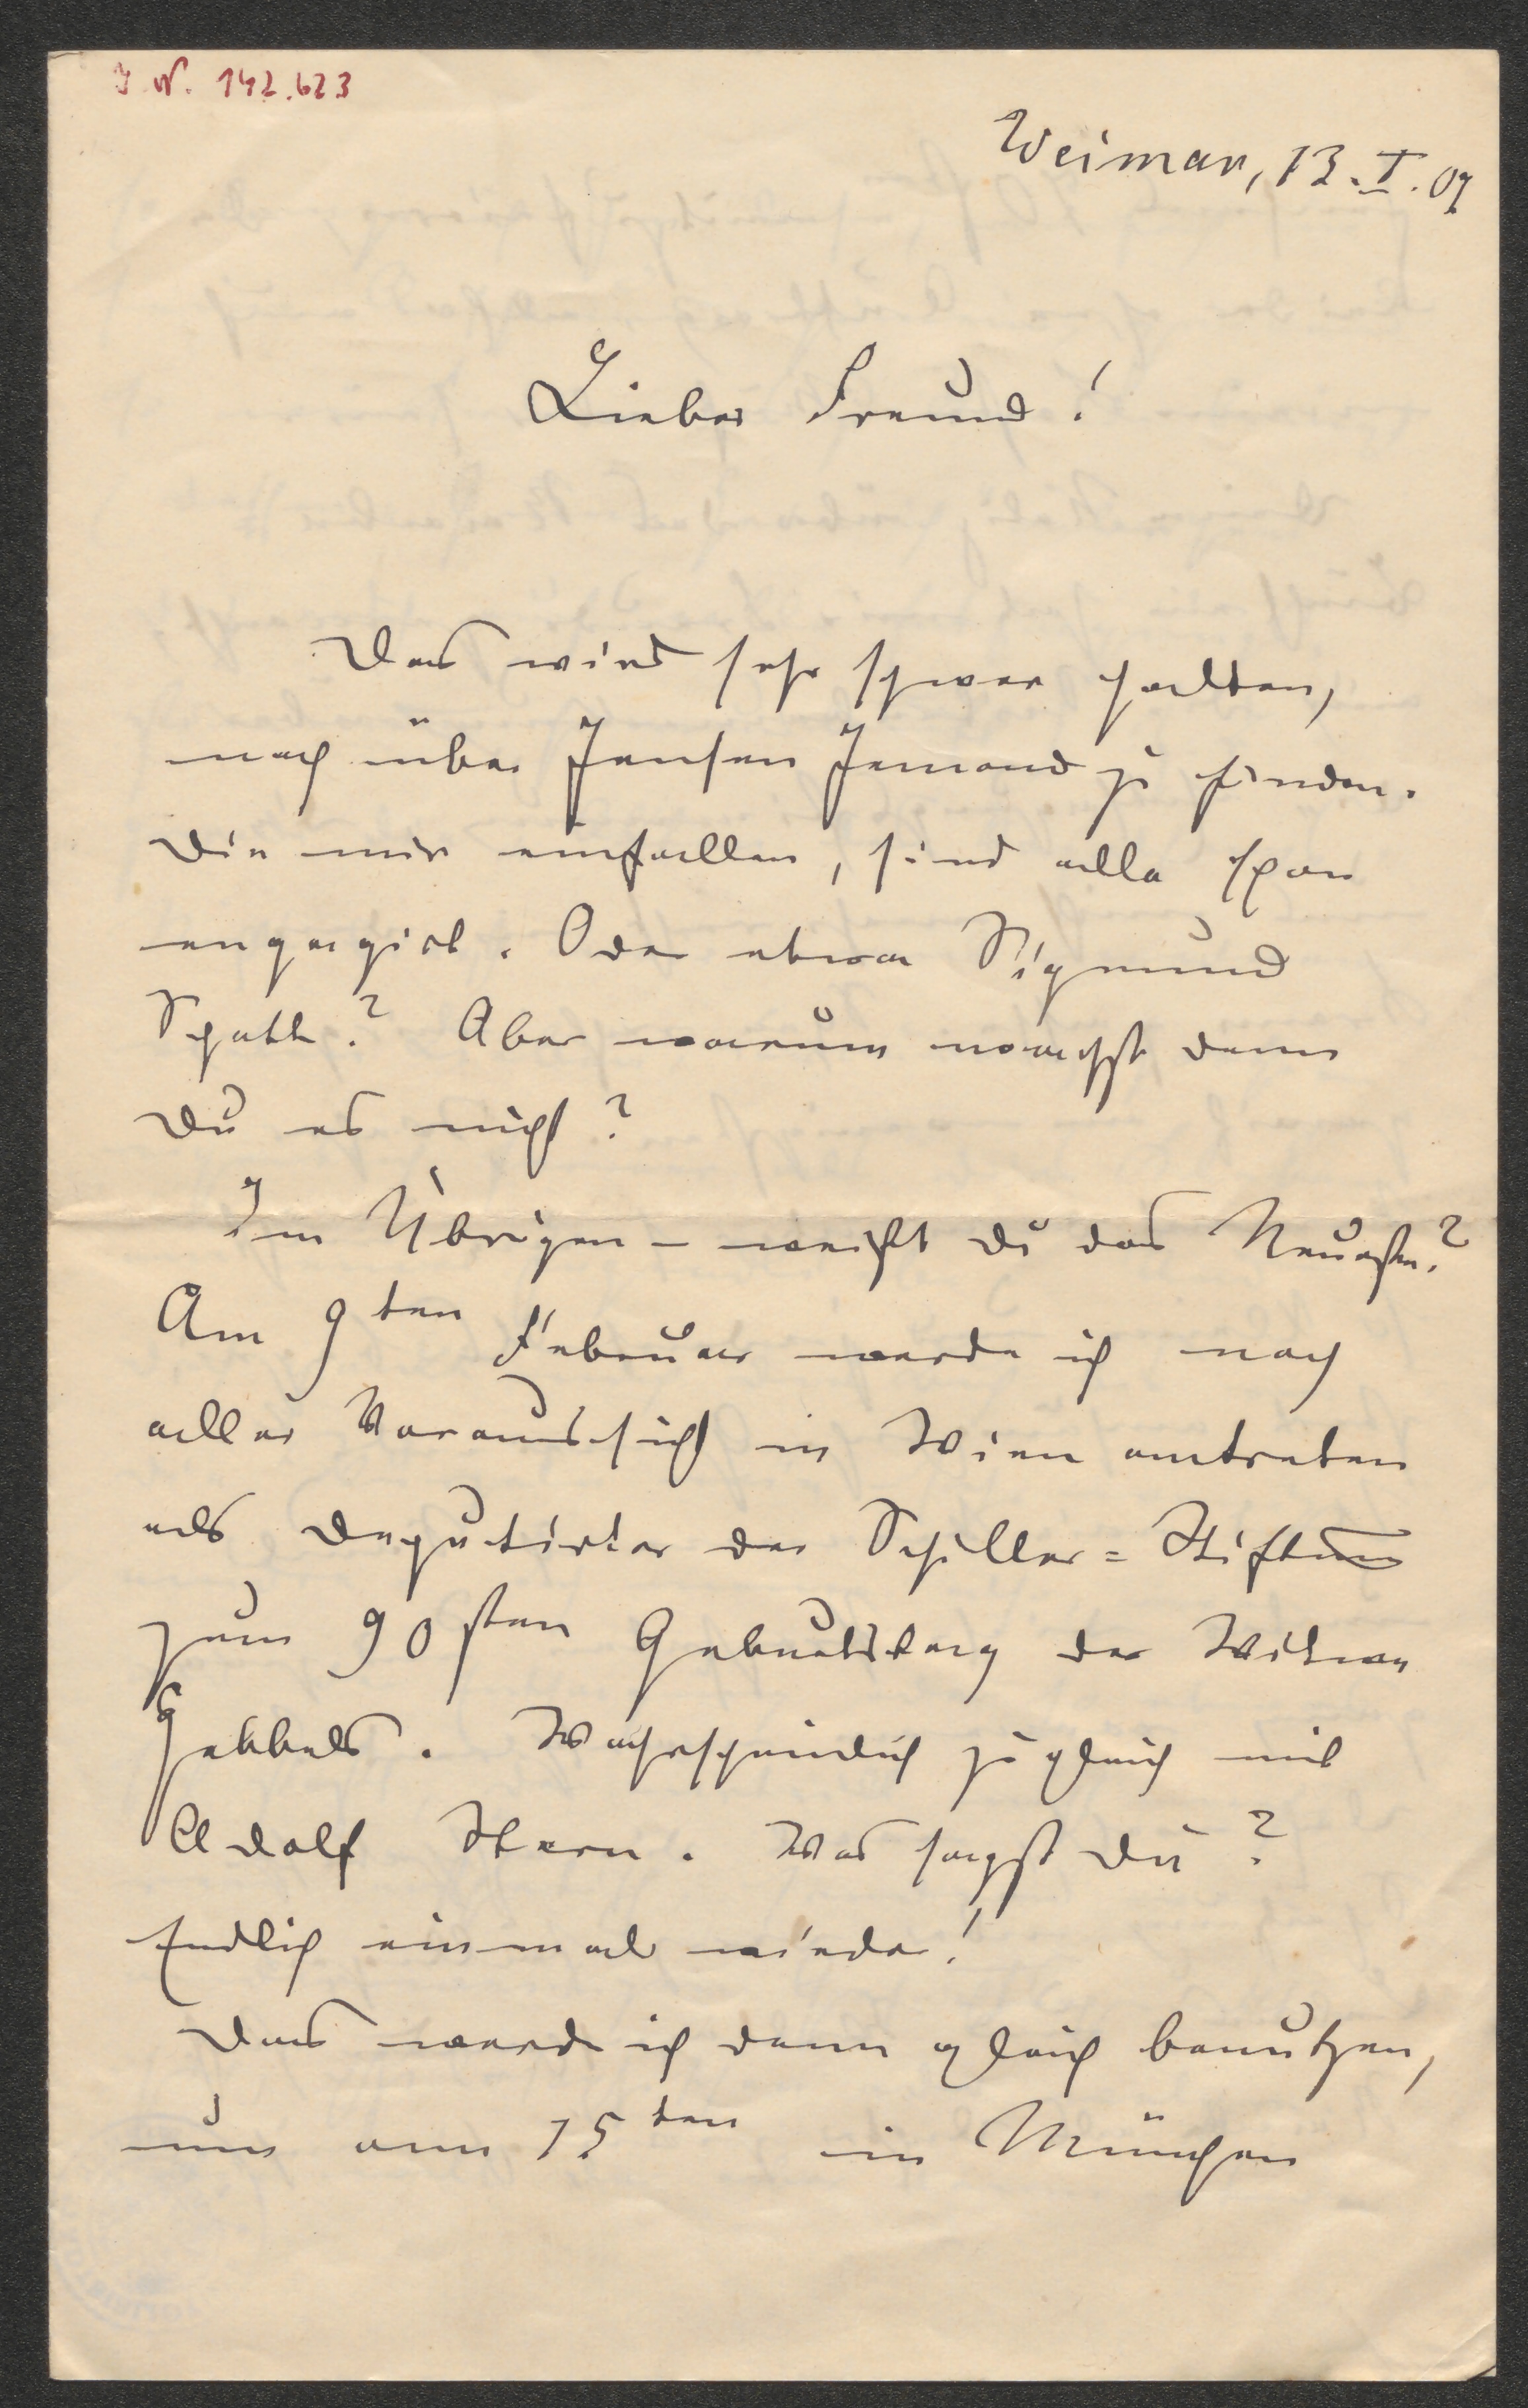 I. N. 142.623
Weimar, 13.I.07
Lieber Freund!
Das wird sehr schwer halten,
noch über Jensen Jemand zu finden.
Die mir einfallen, sind alle schon
engagirt. Oder etwa Sigmund
Schott? Aber warum machst denn
Du es nicht?
Im Übrigen – weißt Du das Neueste?
Am 9ten Februar werde ich nach
aller Voraussicht in Wien antreten
als Deputirter der Schiller=Stiftung
zum 90sten Geburtstag der Witwe
Hebbels. Wahrscheinlich zugleich mit
Adolf Stern. Was sagst Du?
Endlich einmal wieder!
Das werde ich dann gleich benutzen,
um am 15ten in München